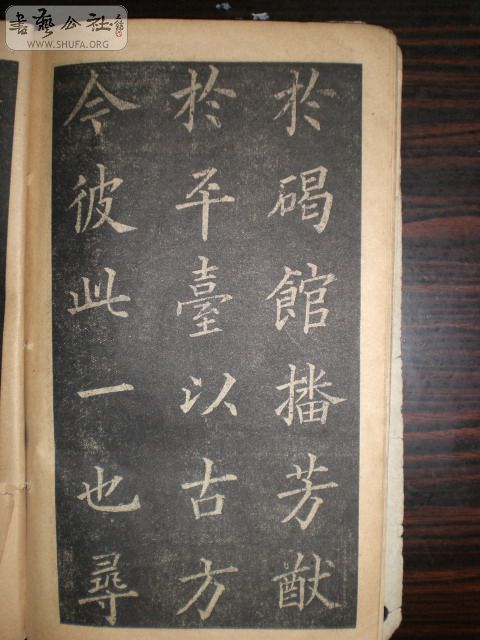 書藝公社
www.SHUFA.ORG
於碣館播芳猷
於平臺以古方
今彼此一也尋